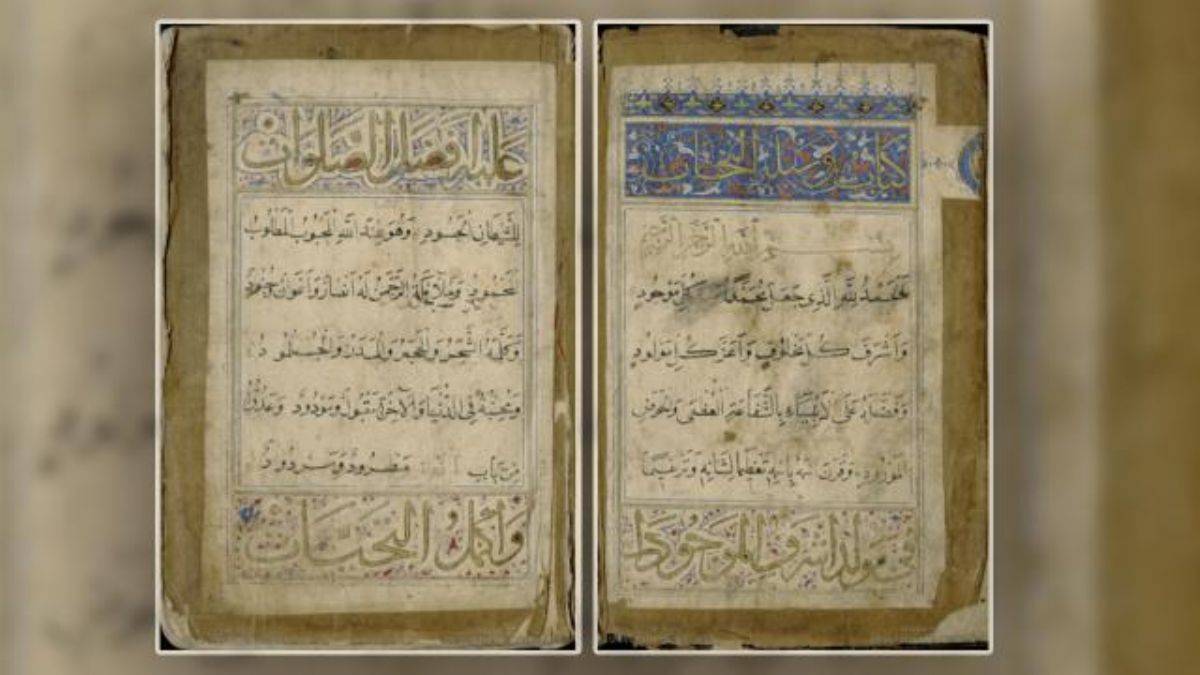 كتاب
بسم الله الرحمن الرحيم
الحمد لله الذي جعل كل موجود
وَاَشْرَفَ كل مخلوق وَاَعَزَّ كل مولود
وفضله على الانبياء بالشفاعة العظمى والحوض
المورود وقرن باسمه تعظيما لشانه وترغيبا
في مولد اشرف الموجودات
عليه افضل الصلوات
للشيطان الحسود وهو عند الله المحبوب المطلوب
محمود وملائكة الرحمن له انصار واعوان وجنود
وكلمه الشجر والحجر والمدر والجلمود
ومحبه في الدنيا والآخرة مقبول ومودود وعدوه
من باب الله مطرود ومردود
واكمل التحيات